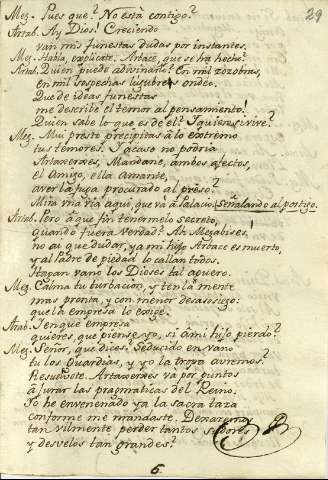 29
Mez. Pues que? No està contigo?
Artab. Ay Dios! Creciendo
van mis funestas dudas por instantes.
Mez. Habla, explicate. Artace, que se ha hecho?
Artab. Quien puede adivinarlo? En mil zozobras,
en mil sospechas lugubres ondeo.
Que de ideas funestas
me describe el terror al pensamiento!
Quien sabe lo que es de èl? I quien si vive?
Mez. Mui presto precipitas à lo extremo
tus temores. I acaso no podria
Artaxerxes, Mandane, ambos afectos,
el Amigo, ella Amante,
aver la fuga procurado al preso?
Mira una via aqui, que và à Palacio. Señalando al postigo.
Artab. Pero à que fin tenermelo secreto,
quando fuera verdad? Ah Megabises!
no ai que dudar, ya mi hijo Arbace es muerto,
y al Padre de piedad lo callan todos.
Hagan vano los Dioses tal aguero.
Mez. Calma tu turbacion, y ten la mente
mas pronta, y con menor desasosiego:
que la empresa lo exige.
Artab. I en que empresa
quieres, que piense yo, si à mi hijo pierdo?
Mez. Señor, que dices? Seducido en vano
tu los Guardias, y yo la tropa avremos?
Resuelvete. Artaxerxes và por puntos
à jurar las pragmaticas del Reino.
Yo he envenenado ya la sacra taza
conforme me mandaste. Dexaremos
tan vilmente perder tantos sudores
y desvelos tan grandes?